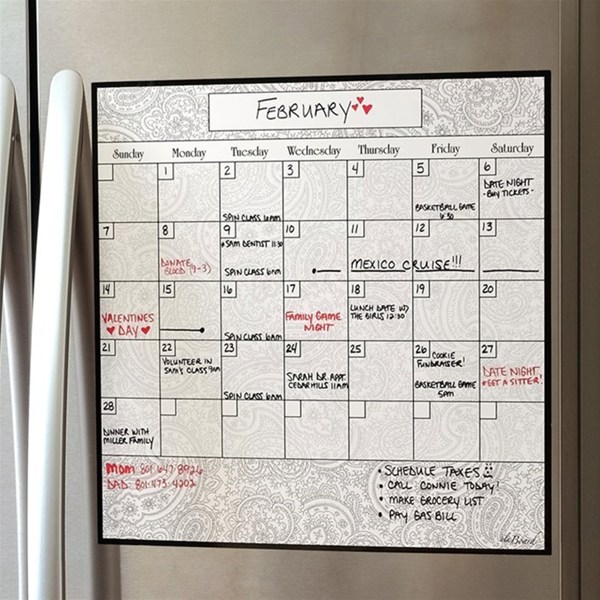 FEBRUARY
Sunday Monday Tuesday Wednesday Thursday Friday Saturday
1 2 3 4 5 6
SPIN CLASS 6AM
BASKETBALL GAME
DATE NIGHT
- BUY TICKETS -
7 8 9 10 11 12 13
DONATE
BLOOD (9-3)
• SAM DENTIST 11:30
SPIN CLASS 6AM
MEXICO CRUISE!!!
14 15 16 17 18 19 20
VALENTINES
DAY
SPIN CLASS 6AM
FAMILY GAME
NIGHT
LUNCH DATE W/
THE GIRLS 12:30
21 22 23 24 25 26 27
VOLUNTEER IN
SAM'S CLASS 9AM
SPIN CLASS 6AM
SARAH DR. APPT.
CEDAR HILLS 11AM
COOKIE
FUNDRAISER!
BASKETBALL GAME
5PM
DATE NIGHT
• GET A SITTER!
28
DINNER WITH
MILLER FAMILY
Mom 801 647 8924
DAD: 801.473.4202
• SCHEDULE TAXES
• CALL CONNIE TODAY!
• MAKE GROCERY LIST
• PAY GAS BILL